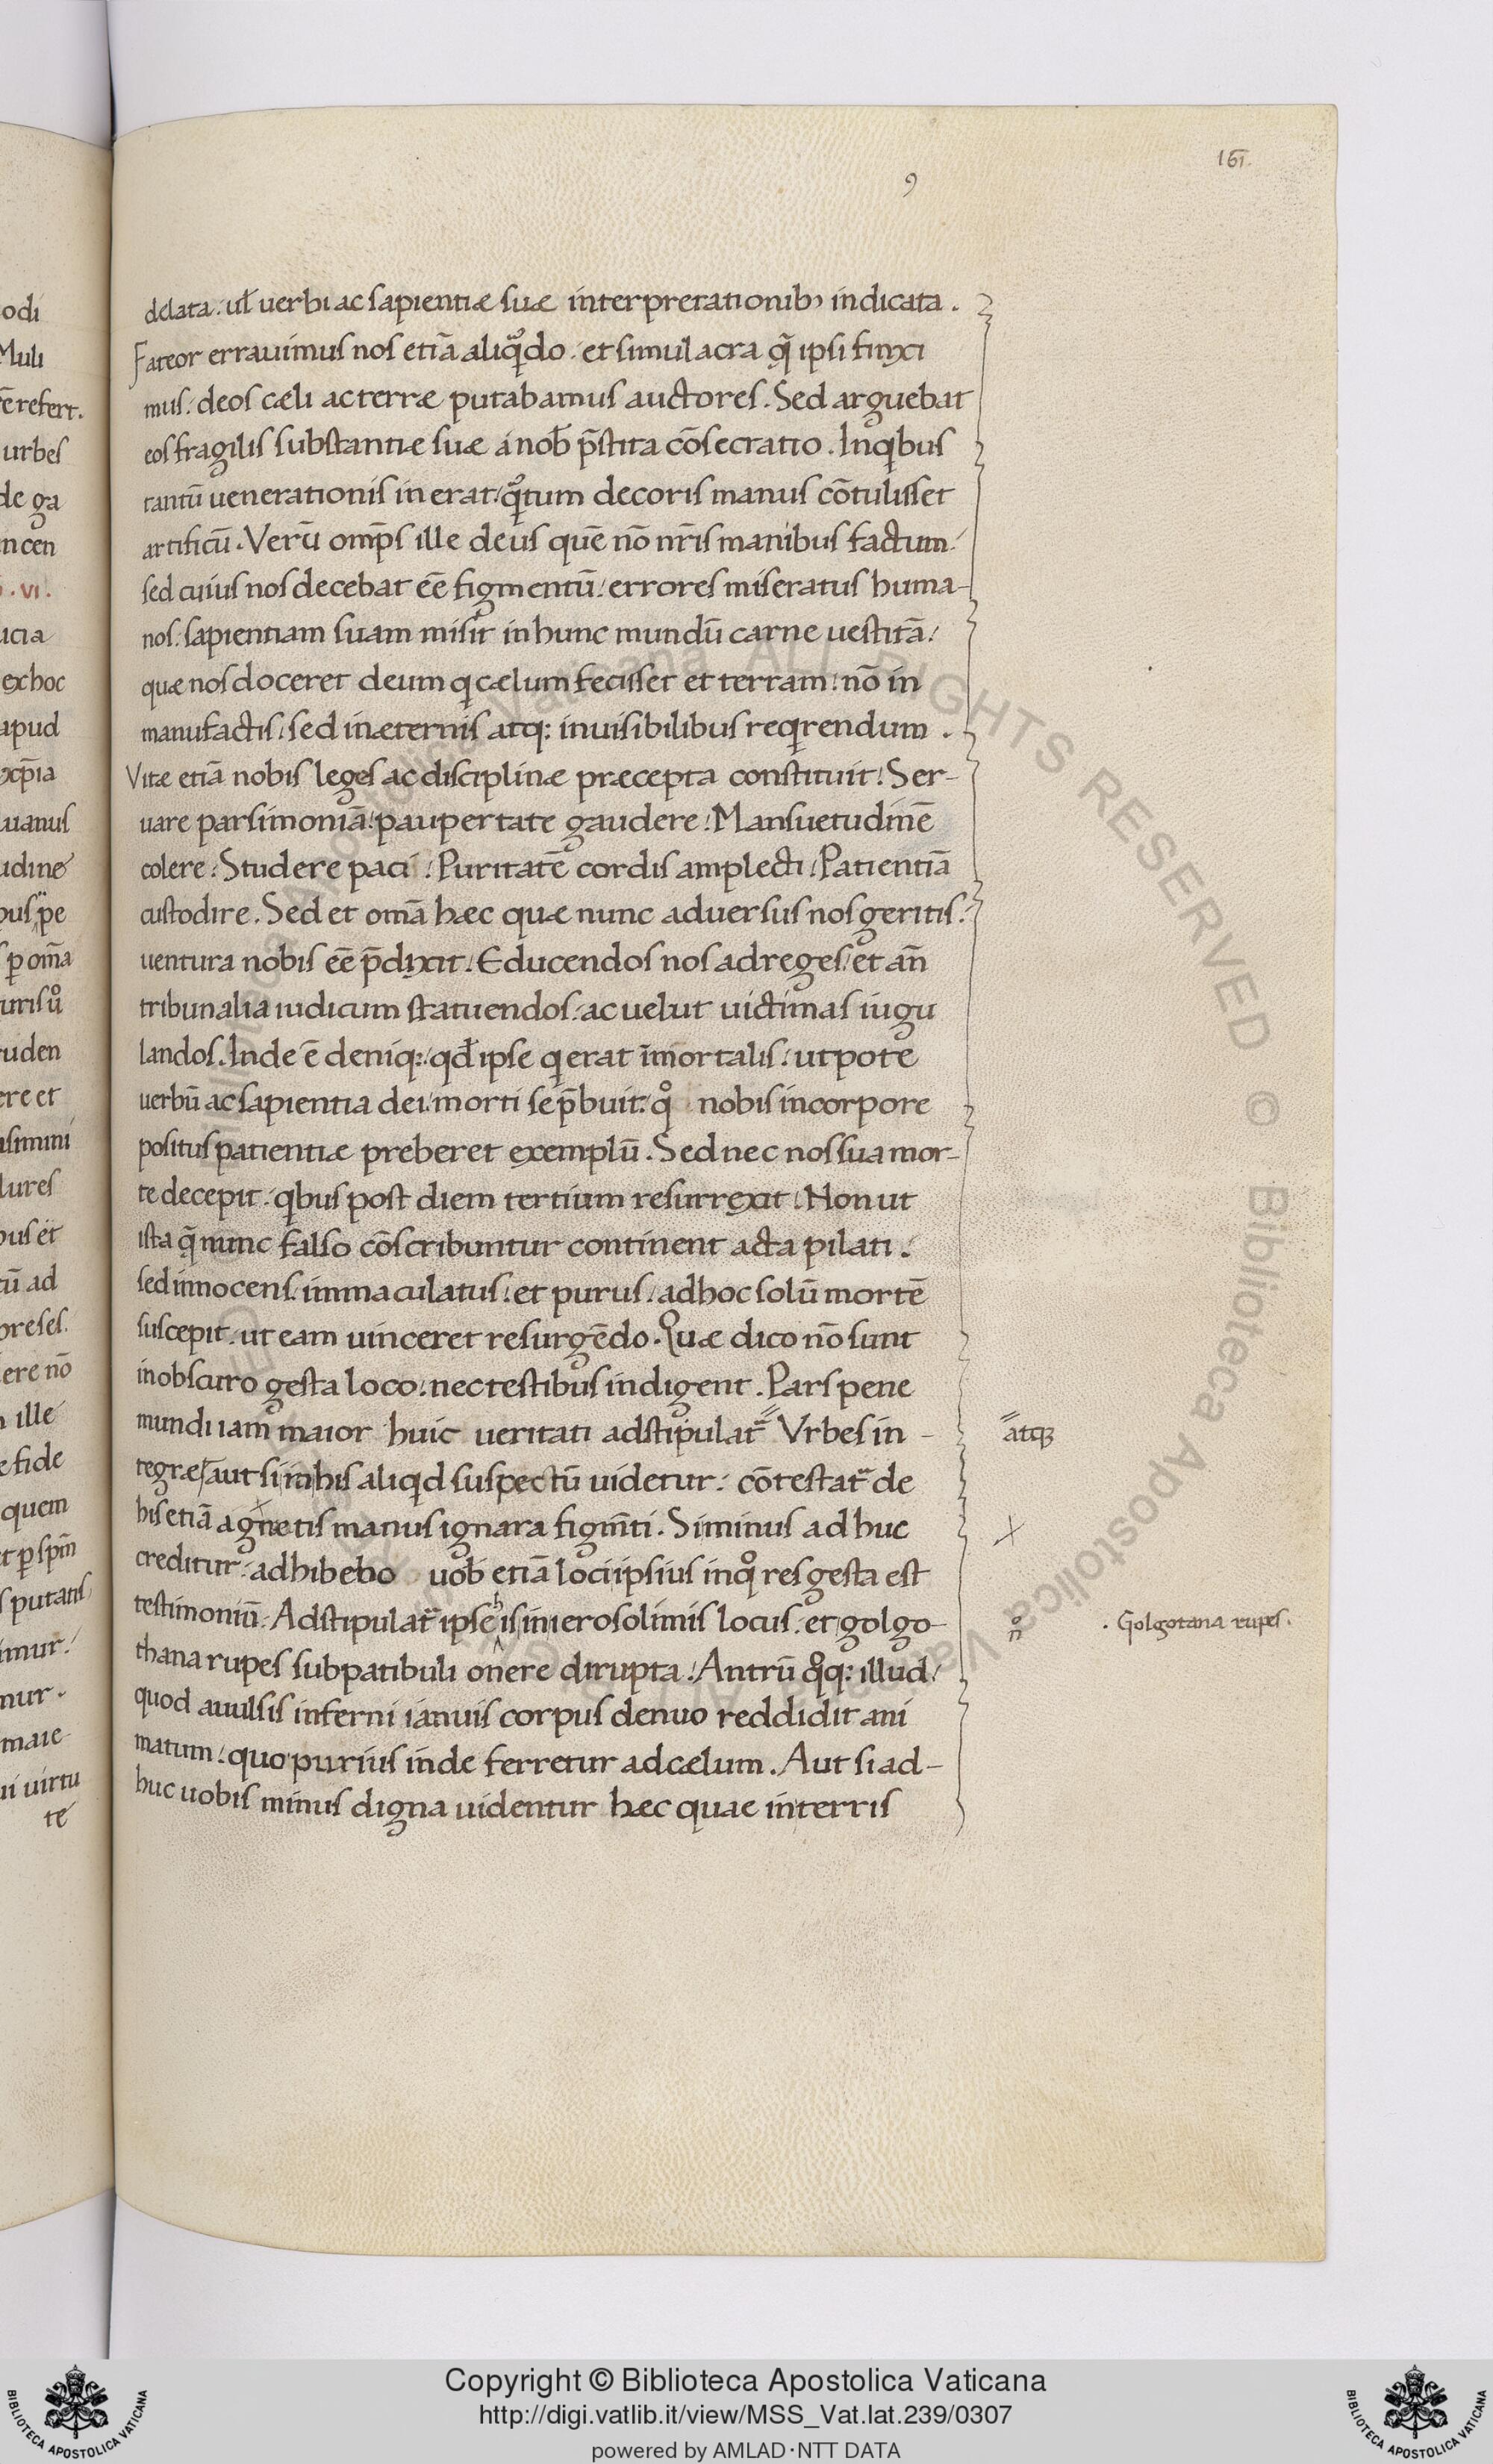 161.
9
delata. ut̄ uerbi ac sapientiæ suæ interpretationibꝰ indicata.
Fateor errauimus nos etiā aliqͣ̊do. et simulacra q̄ ipsi finxi
mus. deos cæli ac terræ putabamus auctores. Sed arguebat
eos fragilis substantiæ suæ a nob̄ p̄stita cōsecratio. Inqͥbus
tantū uenerationis inerat. qͣ̊tum decoris manus cōtulisset
artificū. Verū omp̄s ille deus quē nō nr̄is manibus factum.
sed cuius nos decebat eē figmentū. errores miseratus huma-
nos. sapientiam suam misit in hunc mundū carne uestitā.
quæ nos doceret deum qͥ cælum fecisset et terram. nō in
manufactis. sed in æternis atq; inuisibilibus reqͥrendum.
Vitæ etiā nobis leges ac disciplinæ præcepta constituit. Ser-
uare parsimoniā. paupertate gaudere. Mansuetudinē
colere. Studere paci. Puritatē cordis amplecti. Patientiā
custodire. Sed et om̄a hæc quæ nunc aduersus nos geritis.
uentura nobis eē p̄dixit. Educendos nos ad reges. et an̄
tribunalia iudicum statuendos. ac uelut uictimas iugu
landos. Inde ē deniq;. qd̄ ipse qͥ erat īmortalis. utpote
uerbū ac sapientia dei. morti se p̄buit. qͦ nobis in corpore
positus patientiæ preberet exemplū. Sed nec nos sua mor-
te decepit. qͥbus post diem tertium resurrexit. Non ut
ista q̄ nunc falso cōscribuntur continent acta pilati.
sed innocens. immaculatus. et purus. ad hoc solū mortē
suscepit. ut eam uinceret resurgēdo. Quæ dico nō sunt
in obscuro gesta loco. nec testibus indigent. Pars pene
mundi iam maior huic ueritati adstipulat̄ Vrbes in-
tegræ. aut si in his aliqͥd suspectū uidetur. cōtestat̄ de
his etiā agnetis manus ignara figm̄ti. Si minus adhuc
creditur. adhibebo uob̄ etiā loci ipsius in qͦ res gesta est
testimoniū. Adstipulat̄ ipse hͥs in ierosolimis locus. et golgo-
thana rupes sub patibuli onere dirupta. Antrū qͦq; illud.
quod auulsis inferni ianuis corpus denuo reddidit ani
matum. quo purius inde ferretur ad cælum. Aut si ad-
huc uobis minus digna uidentur hæc quae in terris
atqȝ
. Golgotana rupes.
odi
Muli
ē refert.
urbes
de ga
ncen
. VI.
ucia
ex hoc
apud
uanus
udine
p om̄a
uden
ere et
simini
lures
ū ad
preses.
ere nō
ille
e fide
quem
t p sp̄m
s putatis
imur.
mur.
maie
ui uirtu
te
Copyright © Biblioteca Apostolica Vaticana
http://digi.vatlib.it/view/MSS_Vat.lat.239/0307
powered by AMLAD·NTT DATA
BIBLIOTECA APOSTOLICA VATICANA
BIBLIOTECA APOSTOLICA VATICANA